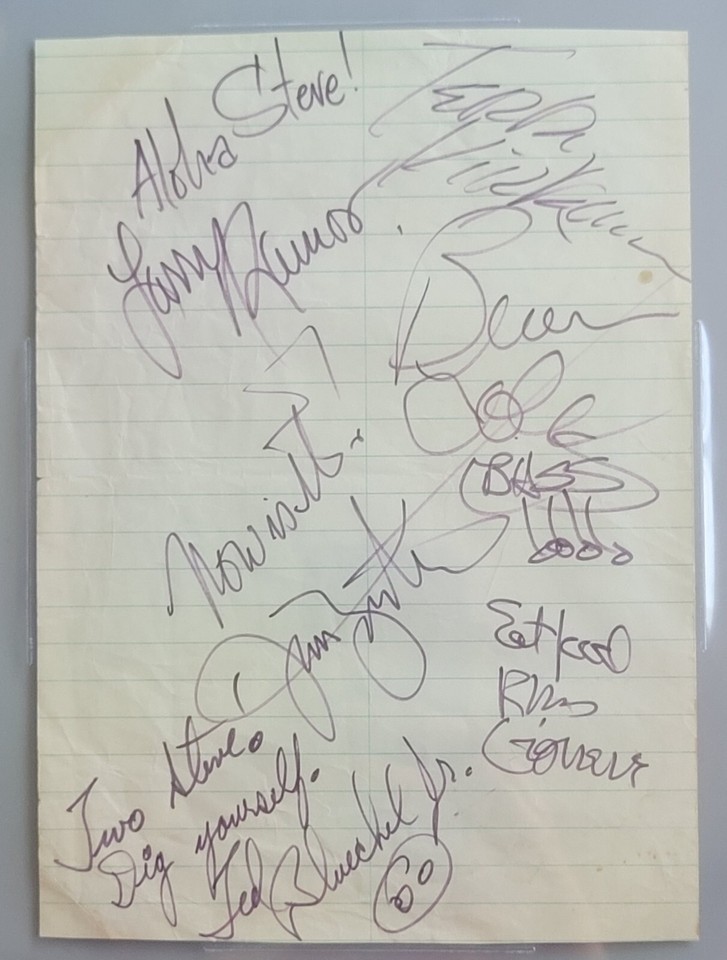 Aloha Steve!
Larry Ramos.
Terry
Kirkman
Brian
Cole
(BASS)
Now is it.
Jim Yester
Eat food
Two Steve.
Dig yourself.
Ted Bluechel Jr.